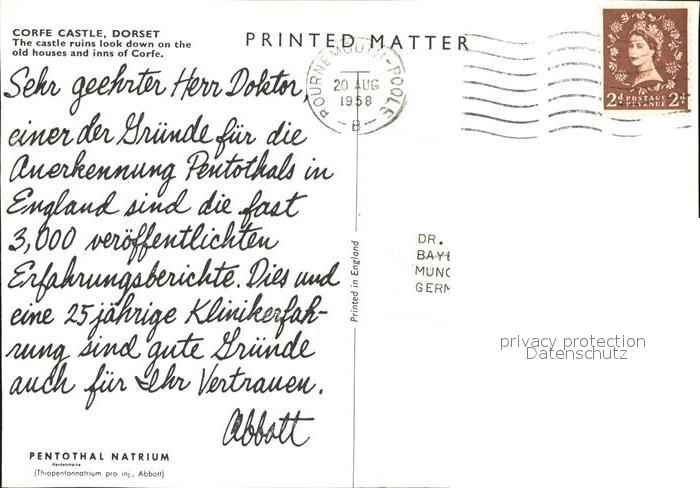 CORFE CASTLE, DORSET
The castle ruins look down on the
old houses and inns of Corfe.
PRINTED MATTER
BOURNEMOUTH-POOLE
20 AUG
1958
-B-
2d POSTAGE 2d
REVENUE
Sehr geehrter Herr Doktor,
einer der Gründe für die
Anerkennung Pentothals in
England sind die fast
3,000 veröffentlichten
Erfahrungsberichte. Dies und
eine 25jährige Klinikerfah-
rung sind gute Gründe
auch für Ihr Vertrauen.
Abbott
PENTOTHAL NATRIUM
Handelsmarke
(Thiopentonnatrium pro inj., Abbott)
Printed in England
DR.
BAYE
MUNC
GERM
privacy protection
Datenschutz